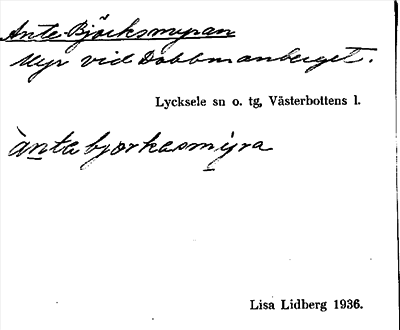 Ante-Björksmyran
Myr vid Dobbmanberget.
Lycksele sn o. tg, Västerbottens l.
ànta bjorkasmýra
Lisa Lidberg 1936.